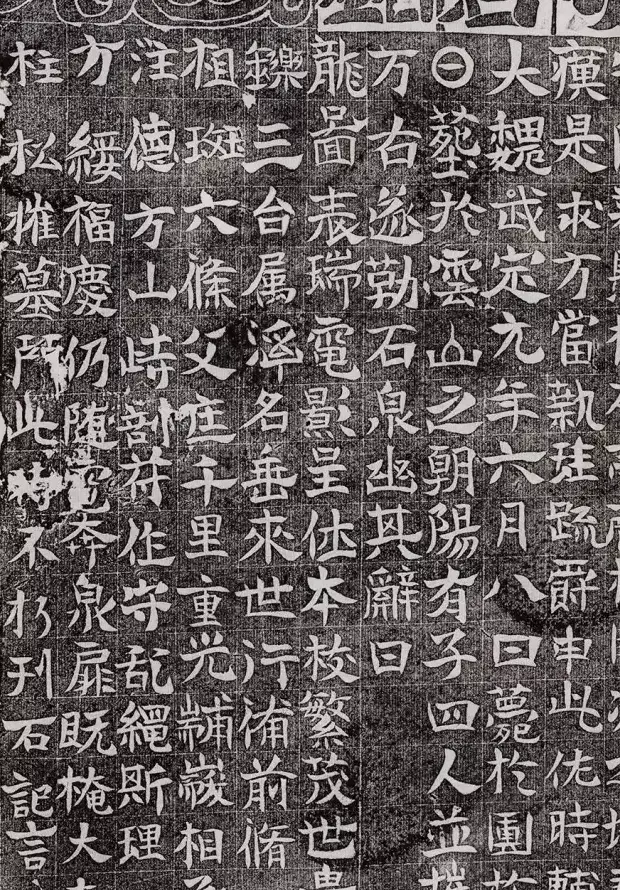 是求方當執珪踈爵申此佐時
大魏武定元年六月八日薨於
日葬於雲山之朝陽有子四人並
万右遂勒石泉幽其辭曰
龍啚表瑞電影呈休本枝繁茂世
鑠三台属名垂來世行前脩
祖斑六條父在千里重光黼黻相
注德方山峙剖符作守乱繩斯理
方綏福慶仍隨電奔泉扉既掩大
柱松摧墓門此時不朽刊石記言